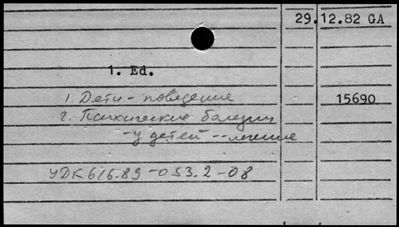 29.12.82 GA
1. Ed.
1. Дети - поведение
15690
2. Психические болезни
- у детей -- лечение
УДК 616.89-053.2-08